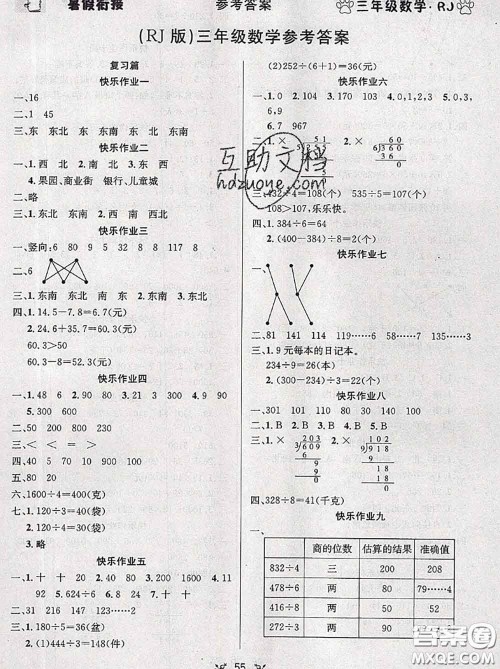 暑假衔接
参考答案
三年级数学·RJ
(RJ版)三年级数学参考答案
复习篇
快乐作业一
一、16
二、1 45
三、东 东北 东 东南 东 东北
快乐作业二
一、1.西 西北 南 东 东南 2.西南
4.果园、商业街 银行、儿童城
二、略
三、1.东南 东北 2.西 西南 东 西北
快乐作业三
一、竖向:6 80 9 5 32 8 118 8
二、6
三、1.东南 东北 南 东 东北 东南
四、1.14.5-7.8=6.7(元)
2.24.6+35.7=60.3(元)
60.3>50
60.3-8=52.3(元)
快乐作业四
一、1.48 6 2.90 3.70 4.7 9
5.300 600
二、1.B 2.B 3.C 4.B
三、< < = >
四、40 5 70 900 100 500
五、80 20
六、1600÷4=400(克)
七、1.120÷3=40(袋)
2.120÷4=30(袋)
3.略
快乐作业五
一、1.十 十 20 2.十 十 20
二、24 32 43 210 500 80
三、1.180÷6=30(盆)
2.(1)444÷3=148(件)
(2)252÷(6+1)=36(元)
快乐作业六
一、1.0 2.104 3.102 4.0,1,2,3 5.
6,9
6.7 967
二、1.× 2.×
三、432÷4=108(个) 535÷5=107(个)
108>107,乐乐快。
四、1.384÷6=64
2.(400-384)÷8=2(个)
快乐作业七
一、
二、81 141 114 119……6 77……4 135
三、1.9元每本的日记本。
234÷9=26(个)
2.264÷8=33(个)
四、(300÷3)÷3=22(个)
快乐作业八
一、1.100 2.3
二、1.B 2.B 3.A 4.B
三、1.× 2.×
四、328÷8=41(千克)
快乐作业九
一、
商的位数 估算的结果 准确值
832÷4 三 200 208
478÷6 两 80 79……4
416÷8 两 50 52
272÷3 两 90 90……2
55
互助文档
hdzuoye.com
答案圈
MXQE.COM